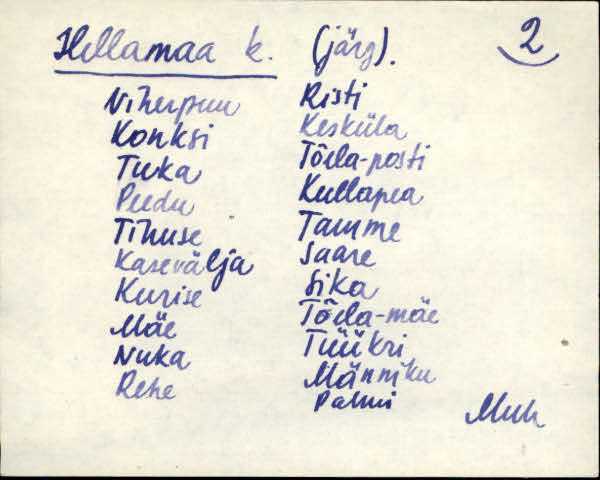 Hellamaa k. (järg). 2
Niherpuu
Konksi
Tuka
Peedu
Tihuse
Kasevälja
Kurise
Mäe
Nuka
Rehe
Risti
Kesküla
Tõela-posti
Kullapea
Tamme
Saare
Sika
Tõela-mäe
Tüükri
Männiku
Palmi
Muh